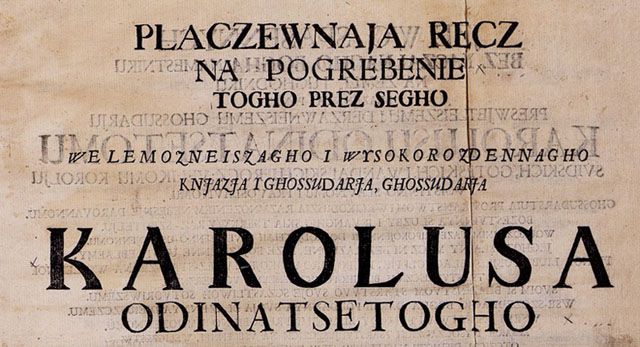 PLACZEWNAJA RECZ
NA POGREBENIE
TOGHO PREZ SEGHO
WELEMOZNEISZAGHO I WYSOKOROZDENNAGHO
KNJAZJA I GHOSSUDARJA, GHOSSUDARJA
KAROLUSA
ODINATSETOGHO